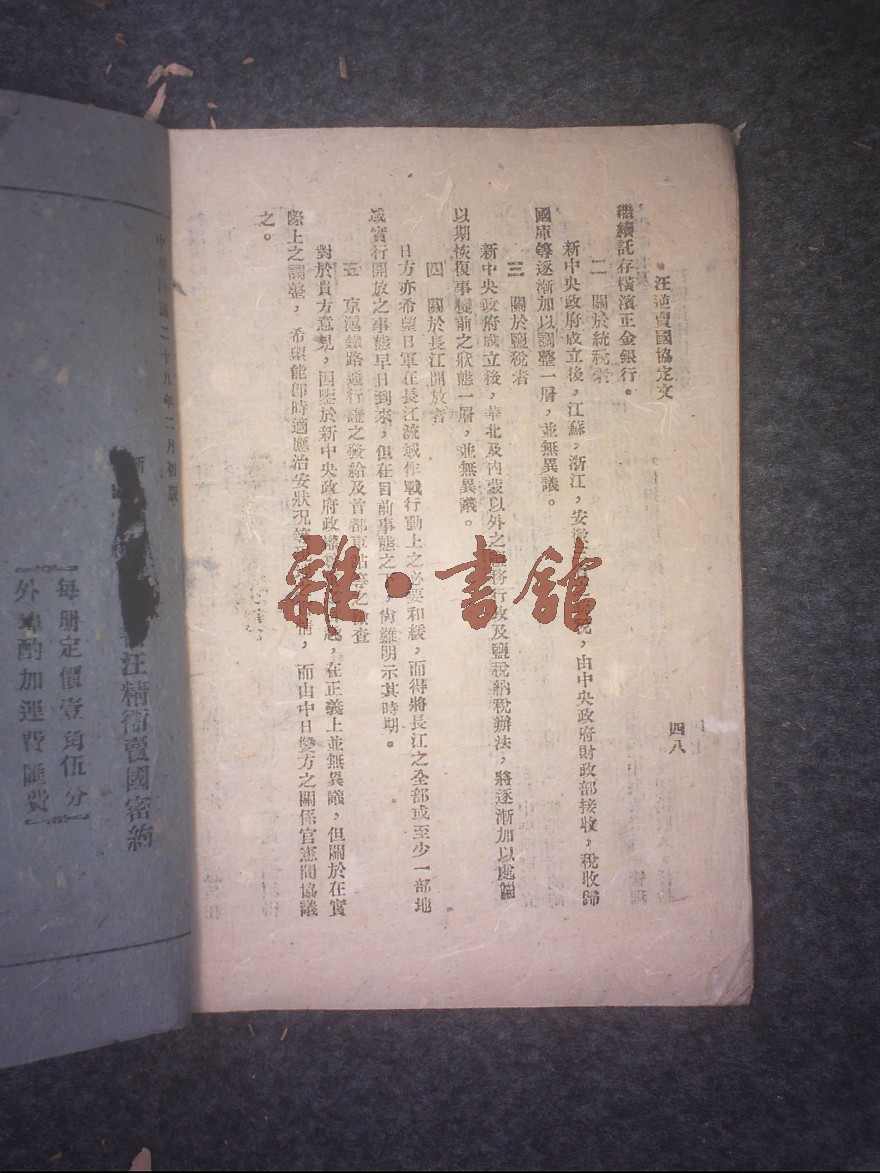 汪逆賣國協定文
四八
繼續託存橫濱正金銀行。
二 關於統稅者
新中央政府成立後，江蘇，浙江，安徽稅，由中央政府財政部接收，稅收歸
國庫等逐漸加以調整一層，並無異議。
三 關於鹽稅者
新中央政府成立後，華北及內蒙以外之鹽務行政及鹽稅納稅辦法，將逐漸加以處理
以期恢復事變前之狀態一層，並無異議。
四 關於長江開放者
日方亦希望日軍在長江流域作戰行動上之必要和緩，而得將長江之全部或至少一部地
域實行開放之事態早日到來，但在目前事態之下，尚難明示其時期。
五 京滬鐵路通行證之發給及首都車站等之檢查
對於貴方意見，因鑒於新中央政府政權，在正義上並無異議，但關於在實
際上之調整，希望能即時適應治安狀況等，而由中日雙方之關係官憲間協議
之。
雜·書館
中華民國二十九年二月初版
汪精衛賣國密約
每冊定價壹角伍分
外埠酌加運費匯費